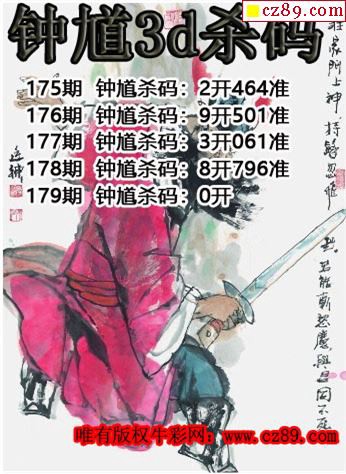 cz89.com
钟馗3d杀码
175期 钟馗杀码：2开464准
176期 钟馗杀码：9开501准
177期 钟馗杀码：3开061准
178期 钟馗杀码：8开796准
179期 钟馗杀码：0开
家门上神
唯有版权牛彩网：www.cz89.com